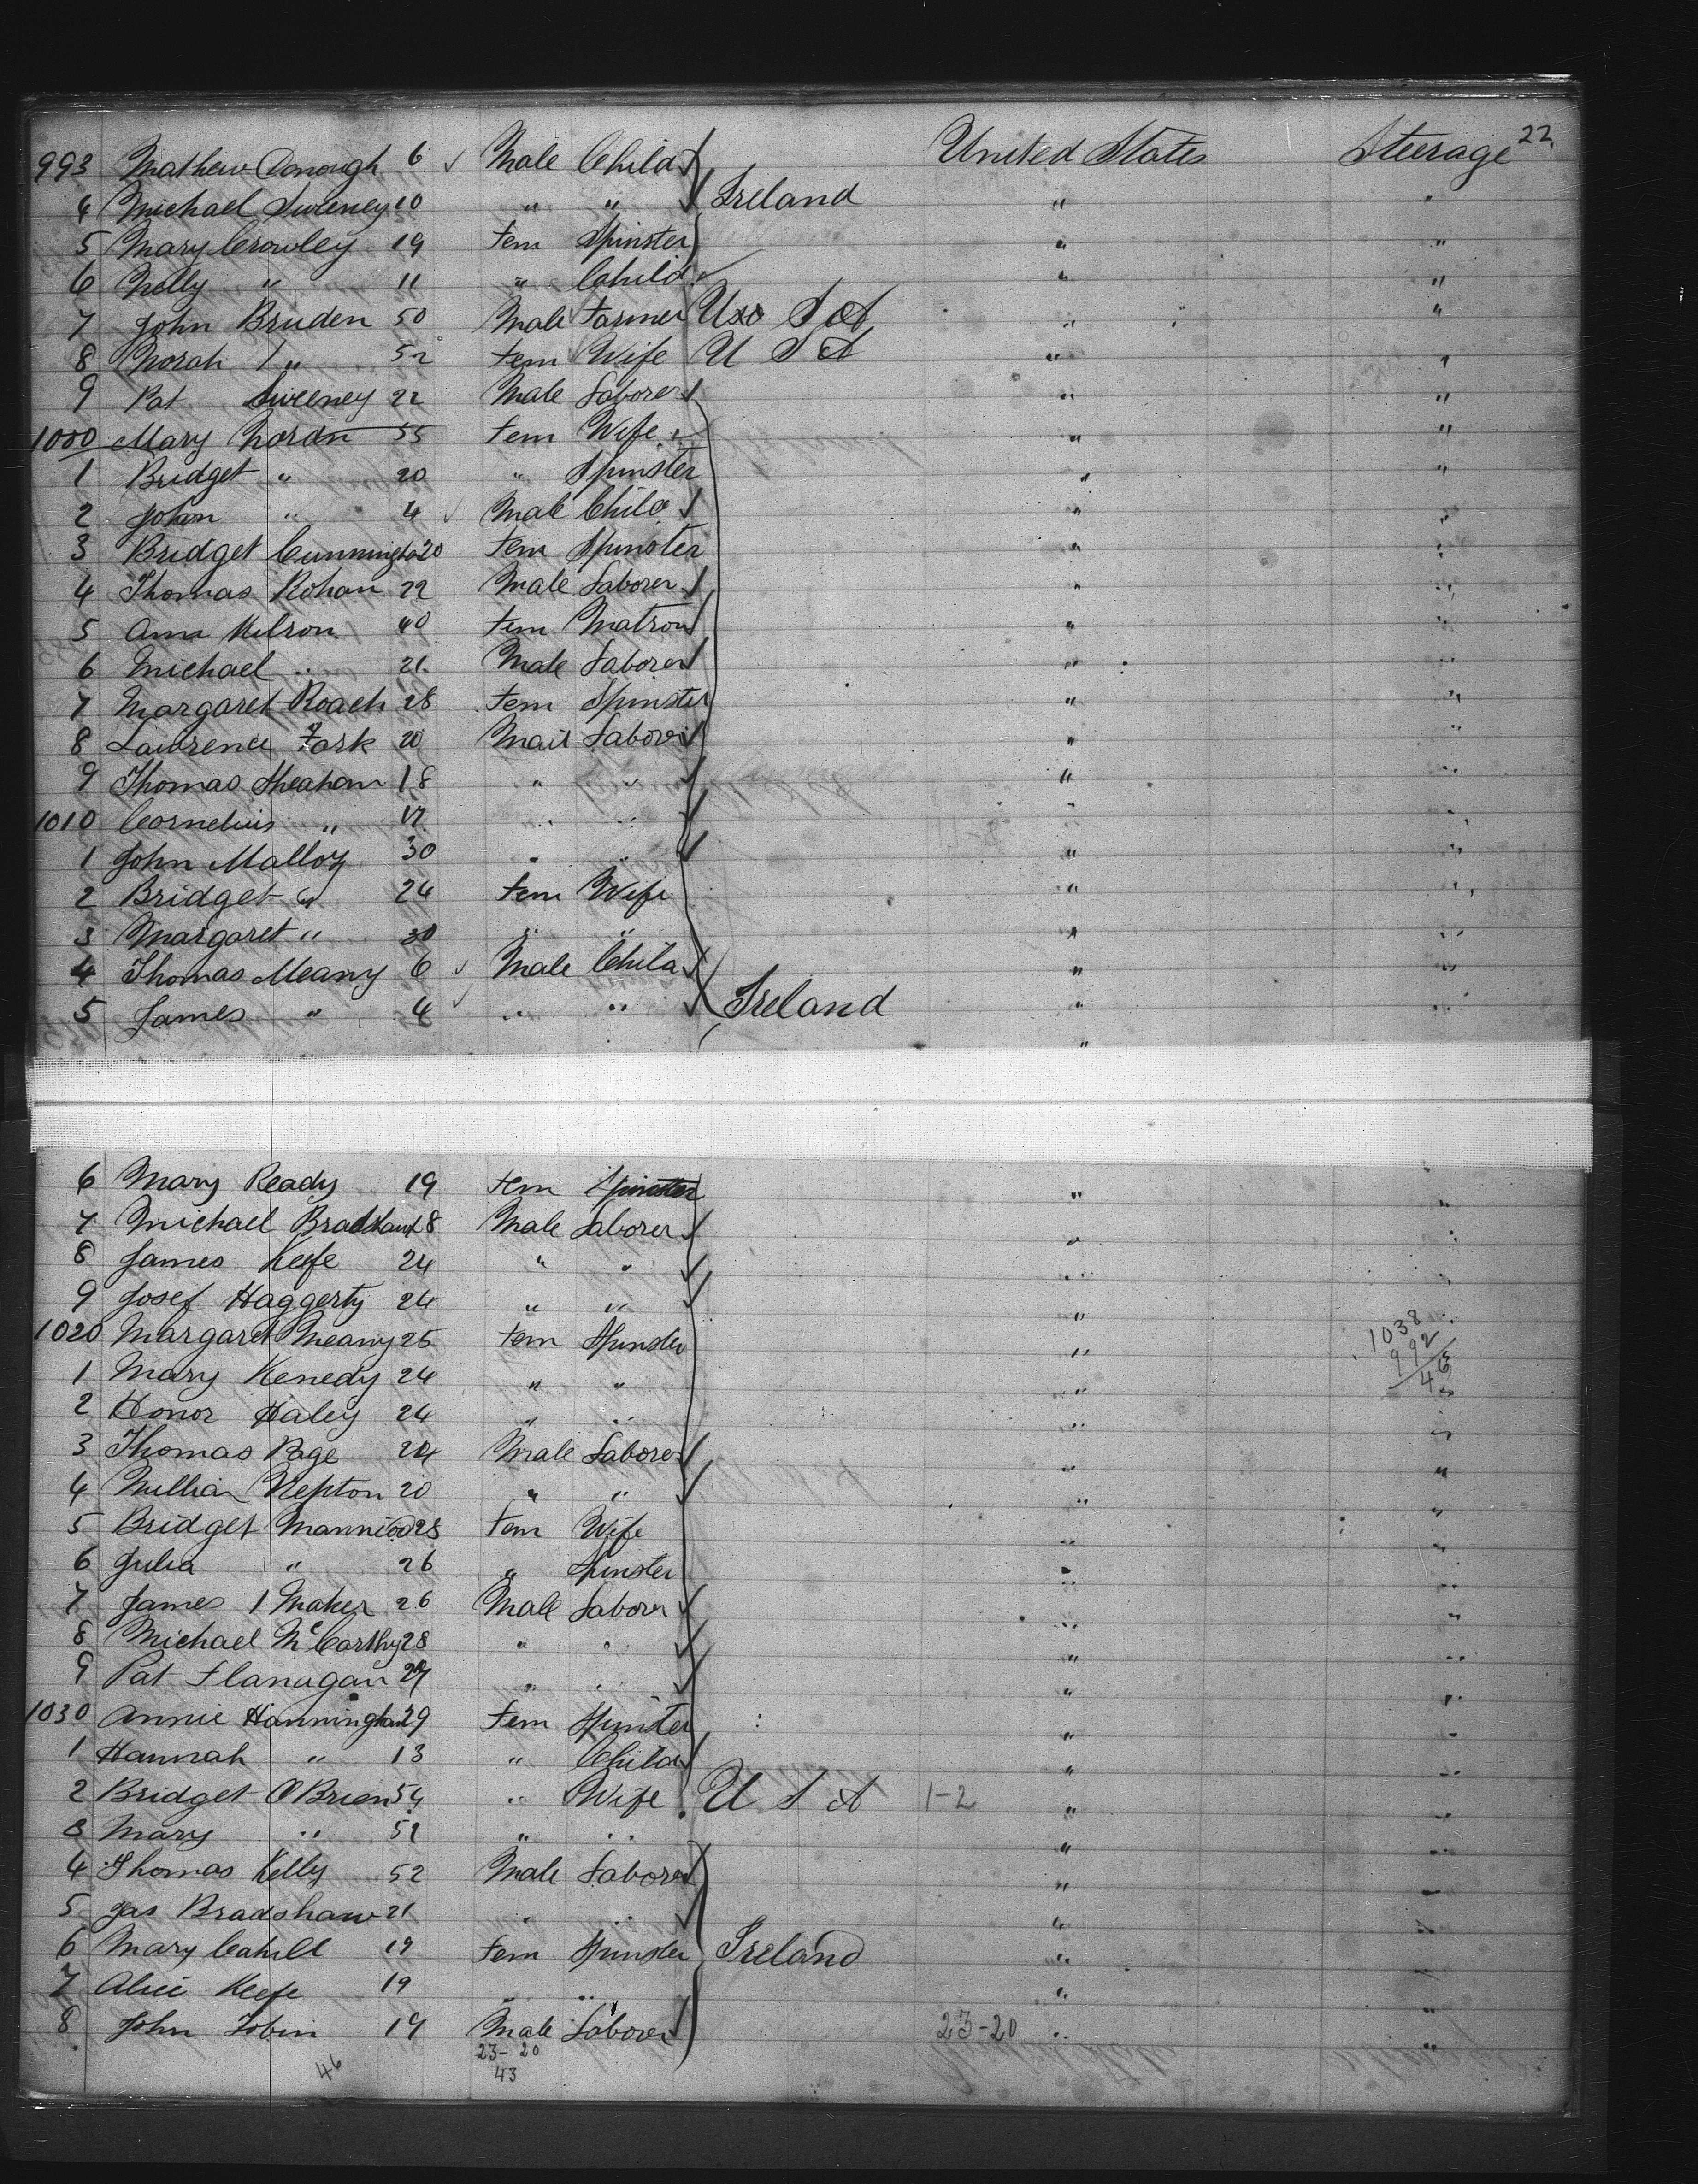 22
993 Mathew Donough 6 ✓ Male Child ✓ United States Steerage
4 Michael Sweeney 10 " " ✓ Ireland " "
5 Mary Crowley 19 Fem Spinster " "
6 Nelly " 11 " Child ✓ " "
7 John Bruden 50 Male Farmer U S A " "
8 Norah " 52 Fem Wife U S A " "
9 Pat Sweeney 22 Male Laborer ✓ " "
1000 Mary 55 Fem Wife " "
1 Bridget " 20 " Spinster " "
2 John " 4 ✓ Male Child ✓ " "
3 Bridget 20 Fem Spinster " "
4 Thomas Rohan 22 Male Laborer ✓ " "
5 Ann 40 Fem Matron ✓ " "
6 Michael " 21 Male Laborer ✓ " "
7 Margaret Roach 28 Fem Spinster " "
8 Lawrence 20 Laborer ✓ " "
9 Thomas Sheahan 18 " " ✓ " "
1010 Cornelius " 17 " " ✓ " "
1 John Malloy 30 " " ✓ " "
2 Bridget " 24 Fem Wife " "
3 Margaret " 30 " " " "
4 Thomas Meany 6 ✓ Male Child ✓ " "
5 James " 4 ✓ " " ✓ Ireland " "
"
6 Mary Ready 19 Fem Spinster " "
7 Michael Bradshaw 18 Male Laborer ✓ " "
8 James Keefe 24 " " ✓ " "
9 Josef Haggerty 24 " " ✓ " "
1020 Margaret Meany 25 Fem Spinster " "
1038
992
46
1 Mary Kenedy 24 " " " "
2 Honor Haley 24 " " " "
3 Thomas Page 24 Male Laborer ✓ " "
4 20 " " ✓ " "
5 Bridget Mannion 28 Fem Wife " "
6 Julia " 26 " Spinster " "
7 James Maher 26 Male Laborer ✓ " "
8 Michael McCarthy 28 " " ✓ " "
9 Pat Flanagan " " ✓ " "
1030 Annie 29 Fem Spinster " "
1 Hannah " 13 " Child ✓ " "
2 Bridget O'Brien 54 " Wife U S A 1-2 " "
3 Mary " " " " "
4 Thomas Kelly 52 Male Laborer ✓ " "
5 Jas Bradshaw 21 " " ✓ " "
6 Mary Cahill 19 Fem Spinster Ireland " "
7 Alice Keefe 19 " " " "
8 John Tobin 19 Male Laborer ✓ 23-20 " "
23-20
46 43